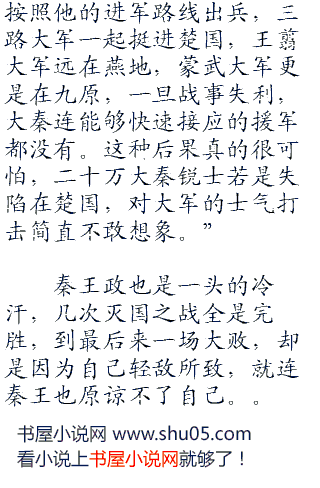 按照他的进军路线出兵，三
路大军一起挺进楚国，王翦
大军远在燕地，蒙武大军更
是在九原，一旦战事失利，
大秦连能够快速接应的援军
都没有。这种后果真的很可
怕，二十万大秦锐士若是失
陷在楚国，对大军的士气打
击简直不敢想象。”
秦王政也是一头的冷
汗，几次灭国之战全是完
胜，到最后来一场大败，却
是因为自己轻敌所致，就连
秦王也原谅不了自己。。
书屋小说网 www.shu05.com
看小说上书屋小说网就够了！